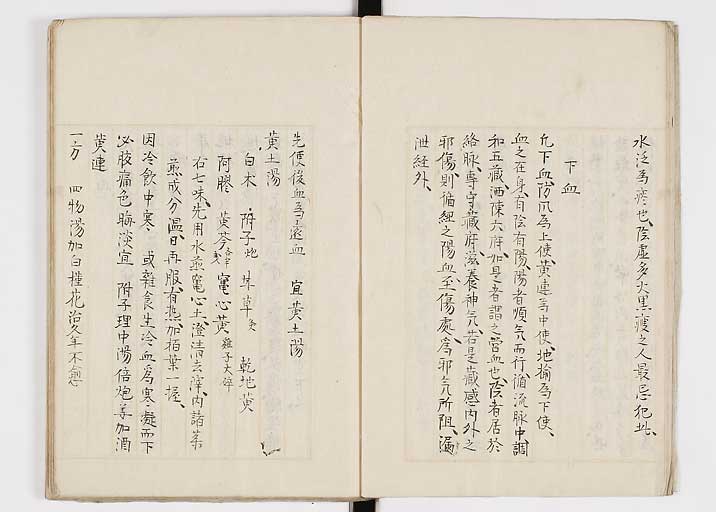 水泛為痰也陰虚多火黒瘦之人最忌犯此
下血
凢下血防風為上使黄連為中使地榆為下使
血之在身有陰有陽陽者順氣而行循流脉中調
和五藏洒陳六府如是者謂之営血也陰者居於
絡脉専守藏府滋養神氣若是藏感内外之
邪傷則循經之陽血至傷處為邪氣所阻漏
泄経外
先便後血為遠血 宜黄土湯
黄土湯
白朮 附子炮 甘草炙 乾地黄
阿膠 黄芩各半 竃心黄雞子大碎
右七味先用水並竃心土澄清去滓内諸茱
煎成分温日再服有熱加栢葉一握
因冷飲中寒 或雜食生冷血為寒凝而下
必腹痛色晦淡宜 附子理中湯倍炮姜加酒
黄連
一方 四物湯加白槿花治久年不愈